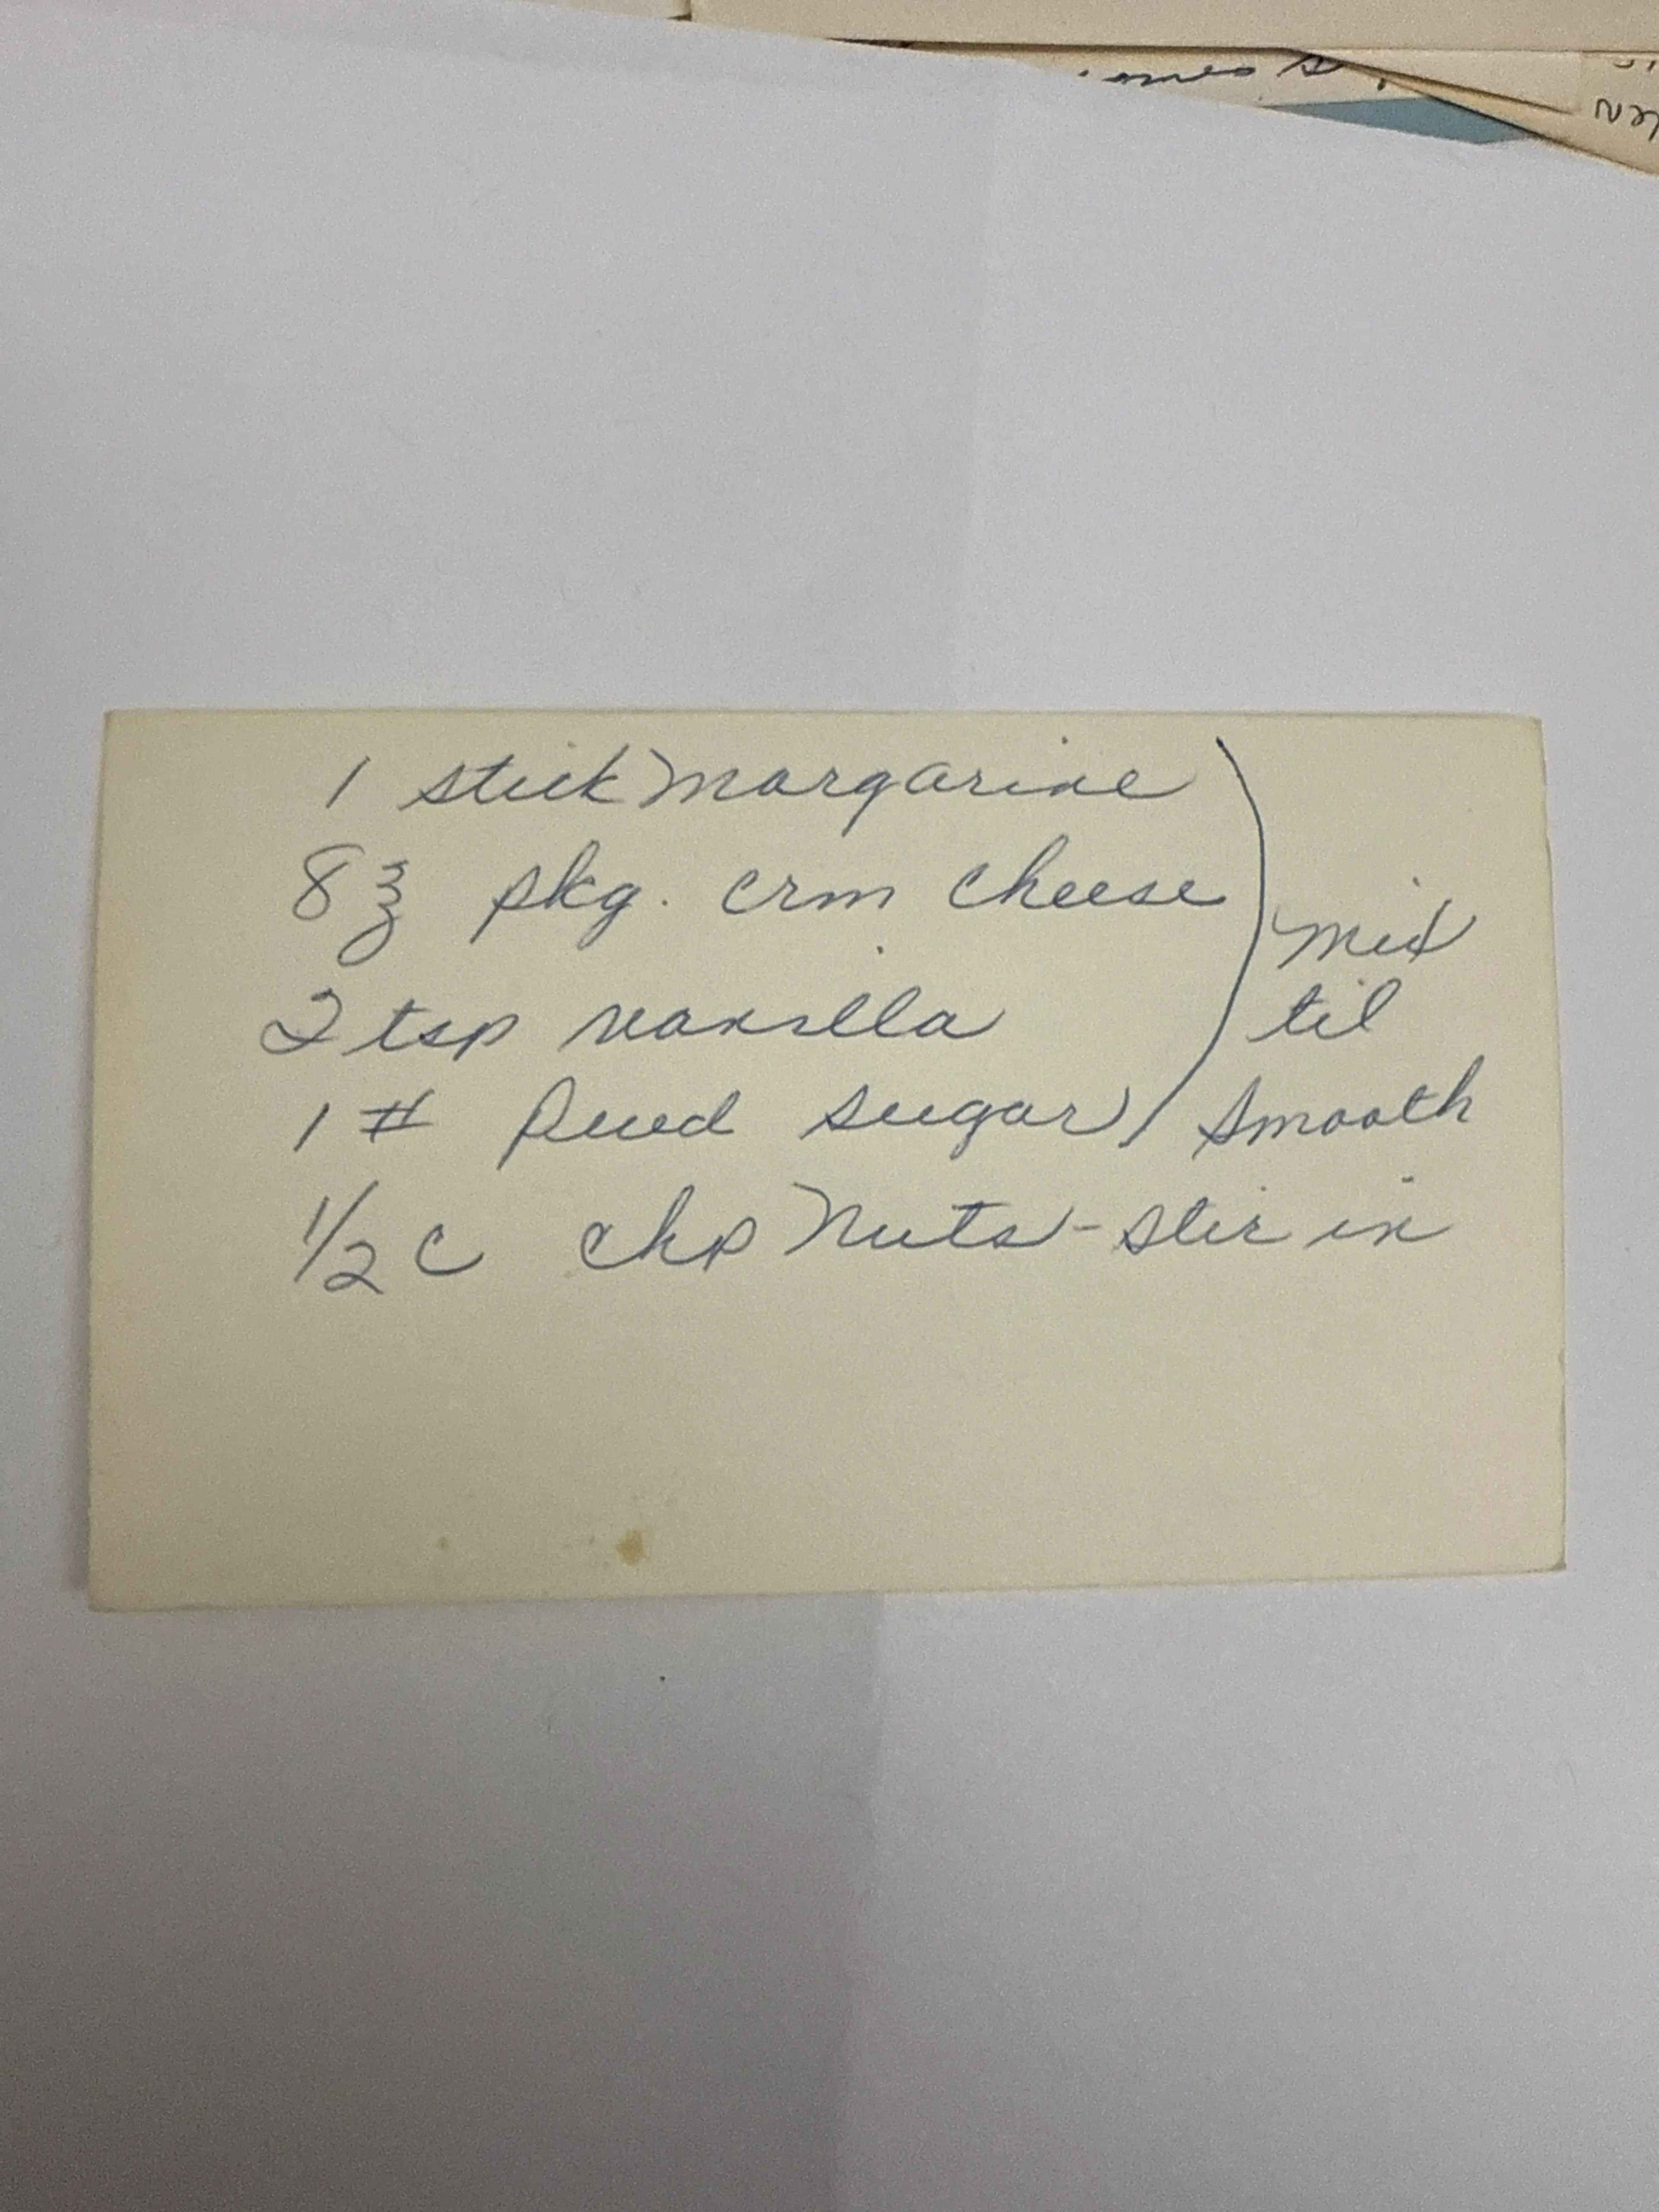 1 stick margarine
8 ℥ pkg. crm cheese
2 tsp vanilla
1 # Pwd sugar
mix
til
smooth
1/2 c chp nuts - stir in